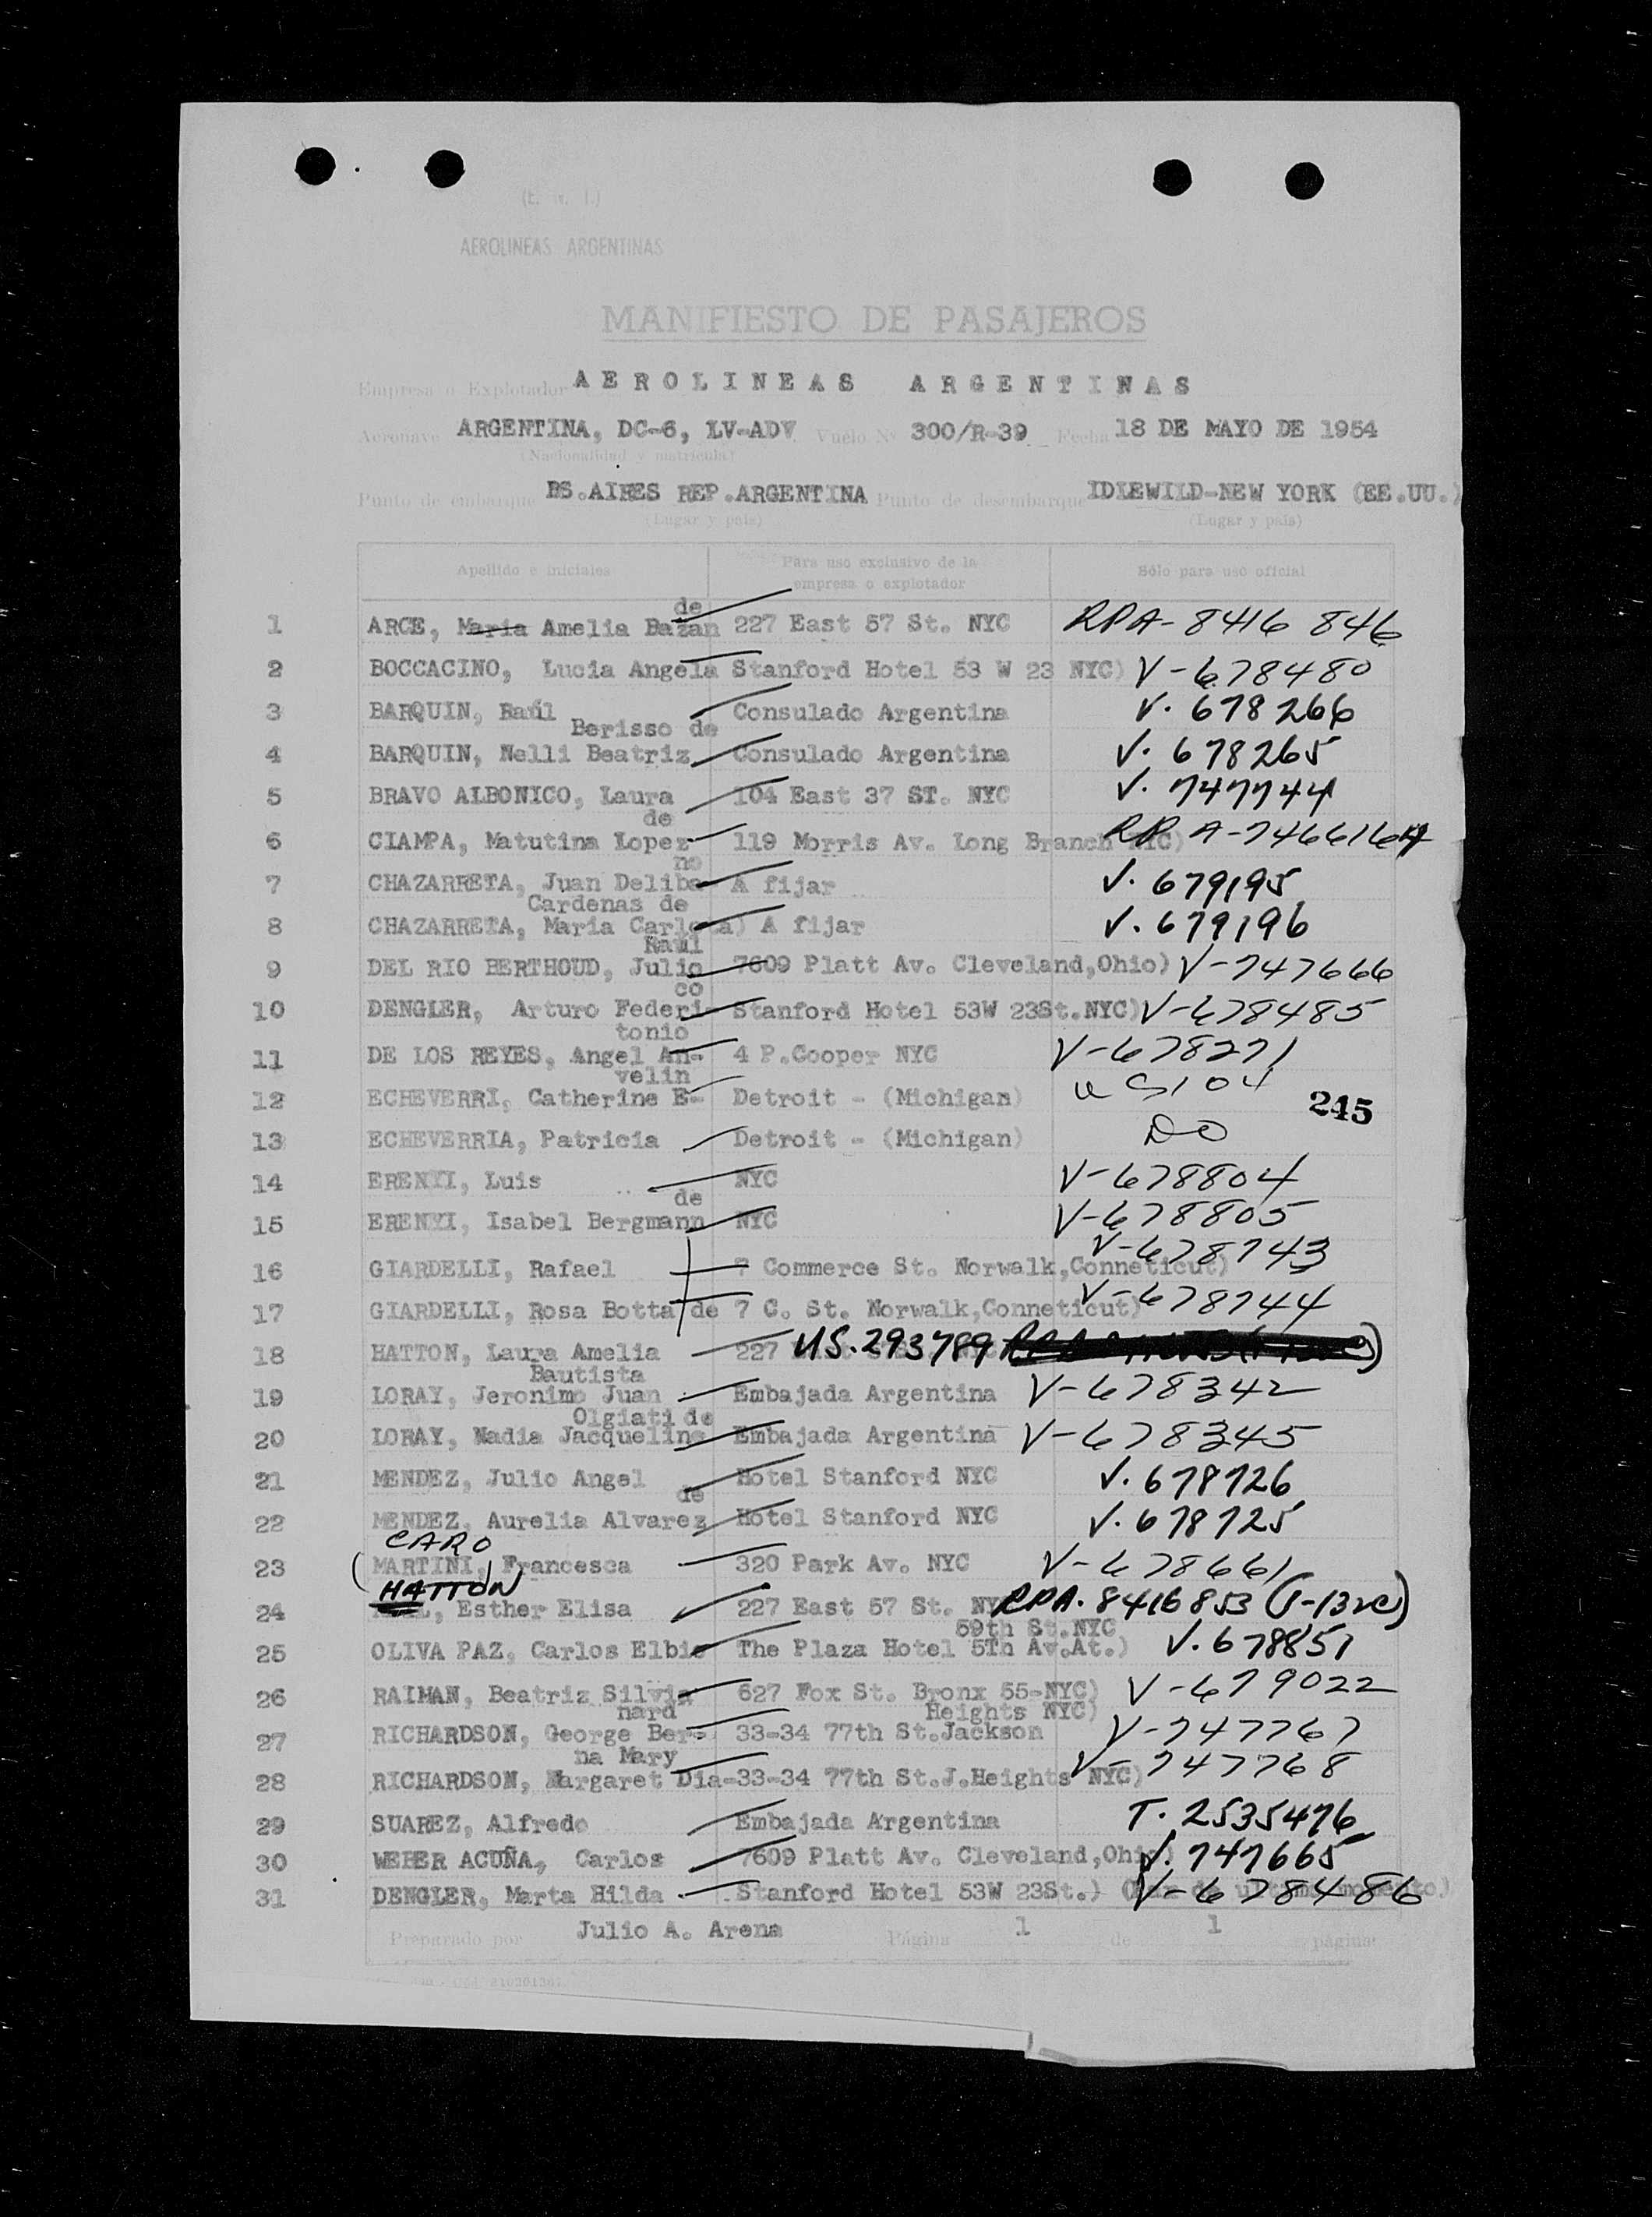 AEROLINEAS ARGENTINAS
MANIFIESTO DE PASAJEROS
Empresa o Explotador AEROLINEAS ARGENTINAS
Aeronave ARGENTINA, DC-6, LV-ADV Vuelo Nº 300/R-39 Fecha 18 DE MAYO DE 1954
(Nacionalidad y matrícula)
Punto de embarque BS.AIRES REP.ARGENTINA Punto de desembarque IDLEWILD-NEW YORK (EE.UU.)
(Lugar y país) (Lugar y país)
Apellido e iniciales Para uso exclusivo de la empresa o explotador Sólo para uso oficial
de
1 ARCE, Maria Amelia Bazan 227 East 57 St. NYC RPA-8416 846
2 BOCCACINO, Lucia Angela Stanford Hotel 53 W 23 NYC) V-678480
3 BARQUIN, Raúl Consulado Argentina V. 678266
Berisso de
4 BARQUIN, Nelli Beatriz Consulado Argentina V. 678265
5 BRAVO ALBONICO, Laura 104 East 37 ST. NYC V. 747744
de
6 CIAMPA, Matutina Lopez 119 Morris Av. Long Branch NYC) RP A-7466164
no
7 CHAZARRETA, Juan Deliba- A fijar V. 679195
Cardenas de
8 CHAZARRETA, Maria Carlota) A fijar V. 679196
Raúl
9 DEL RIO BERTHOUD, Julio 7609 Platt Av. Cleveland,Ohio) V-747666
co
10 DENGLER, Arturo Federi- Stanford Hotel 53W 23St.NYC) V-678485
tonio
11 DE LOS REYES, Angel An- 4 P.Cooper NYC V-678271
velin
12 ECHEVERRI, Catherine E- Detroit - (Michigan)
245
13 ECHEVERRIA, Patricia Detroit - (Michigan) DO
14 ERENYI, Luis NYC V-678804
de
15 ERENYI, Isabel Bergmann NYC V-678805
16 GIARDELLI, Rafael 7 Commerce St. Norwalk,Conneticut) V-678743
17 GIARDELLI, Rosa Botta de 7 C. St. Norwalk,Conneticut) V-678744
18 HATTON, Laura Amelia 227 US.293789
Bautista
19 LORAY, Jeronimo Juan Embajada Argentina V-678342
Olgiati de
20 LORAY, Nadia Jacqueline Embajada Argentina V-678345
21 MENDEZ, Julio Angel Hotel Stanford NYC V. 678726
de
22 MENDEZ, Aurelia Alvarez Hotel Stanford NYC V. 678725
CARO
23 (MARTINI) Francesca 320 Park Av. NYC V-678661
HATTON
24 Esther Elisa 227 East 57 St. NYC RPA. 8416853
59th St.NYC
25 OLIVA PAZ, Carlos Elbio The Plaza Hotel 5Th Av.At.) V. 678851
26 RAIMAN, Beatriz Silvia 627 Fox St. Bronx 55-NYC) V-679022
nard Heights NYC)
27 RICHARDSON, George Ber- 33-34 77th St.Jackson V-747767
na Mary
28 RICHARDSON, Margaret Dia-33-34 77th St.J.Heights NYC) V-747768
29 SUAREZ, Alfredo Embajada Argentina T. 2535476
30 WEBER ACUÑA, Carlos 7609 Platt Av. Cleveland,Ohio) V. 747665
31 DENGLER, Marta Hilda Stanford Hotel 53W 23St.) V-678486
Preparado por Julio A. Arena Página 1 de 1 páginas